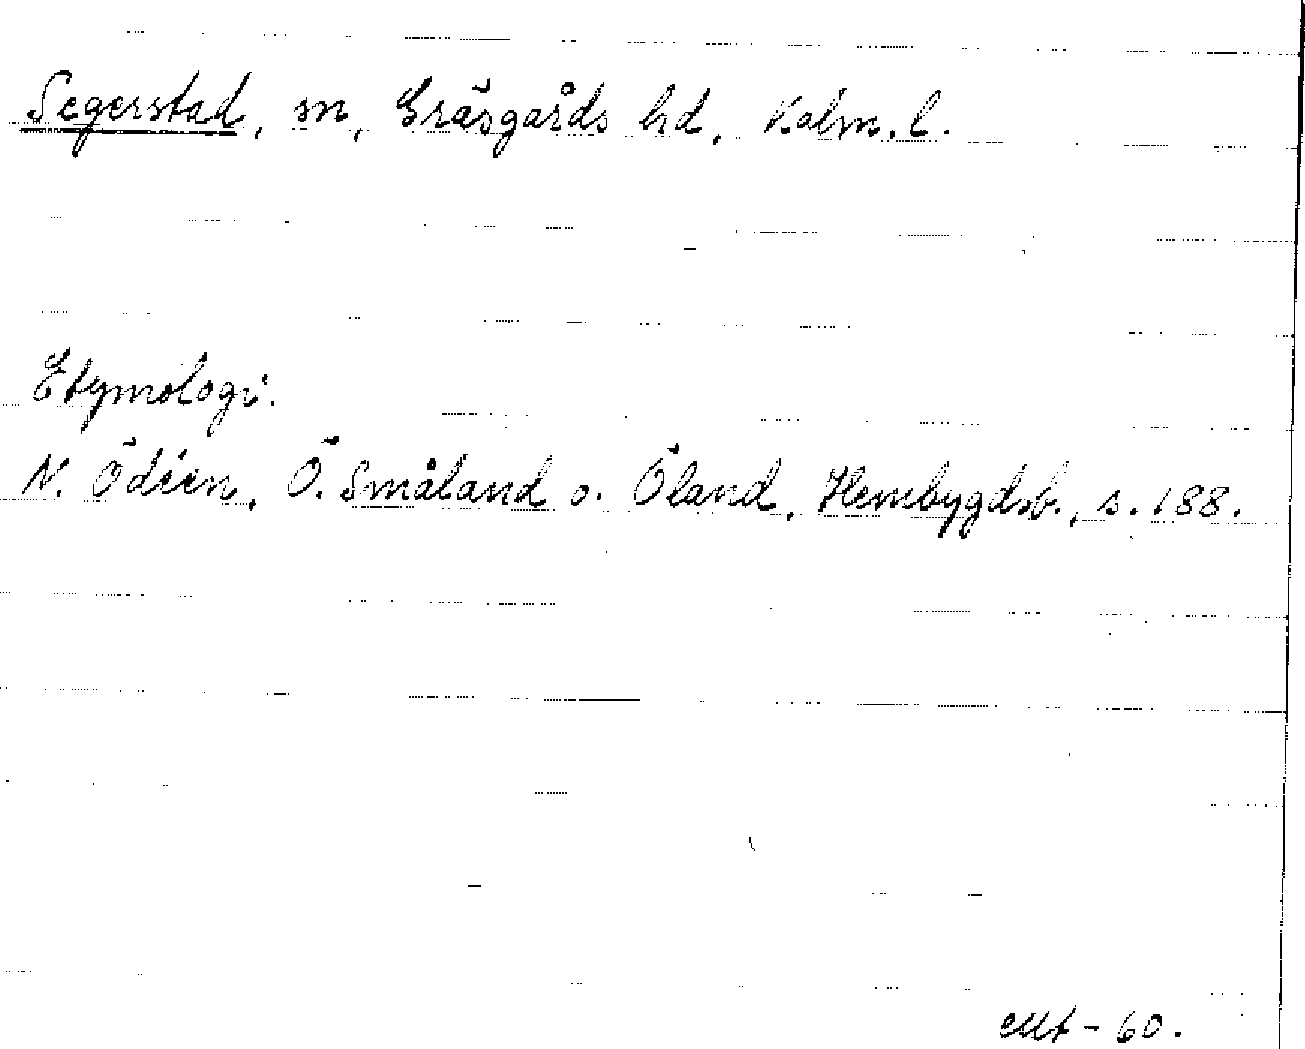 Segerstad, sn, Gräsgårds hd, Kalm. l.
Etymologi.
N. Ödéen, Ö. Småland o. Öland, Hembygdsb., s. 188.
- 60.